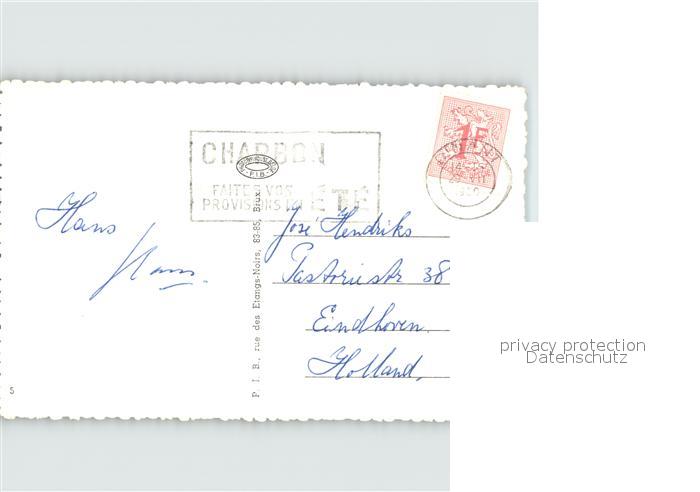 CHARBON
FAITES VOS
PROVISIONS
ÉTÉ
1F
Hans
Hans.
José Hendriks
Pastoriestr 38
Eindhoven.
Holland.
P. I. B., rue des Etangs-Noirs, 83-85, Brux.
5
privacy protection
Datenschutz